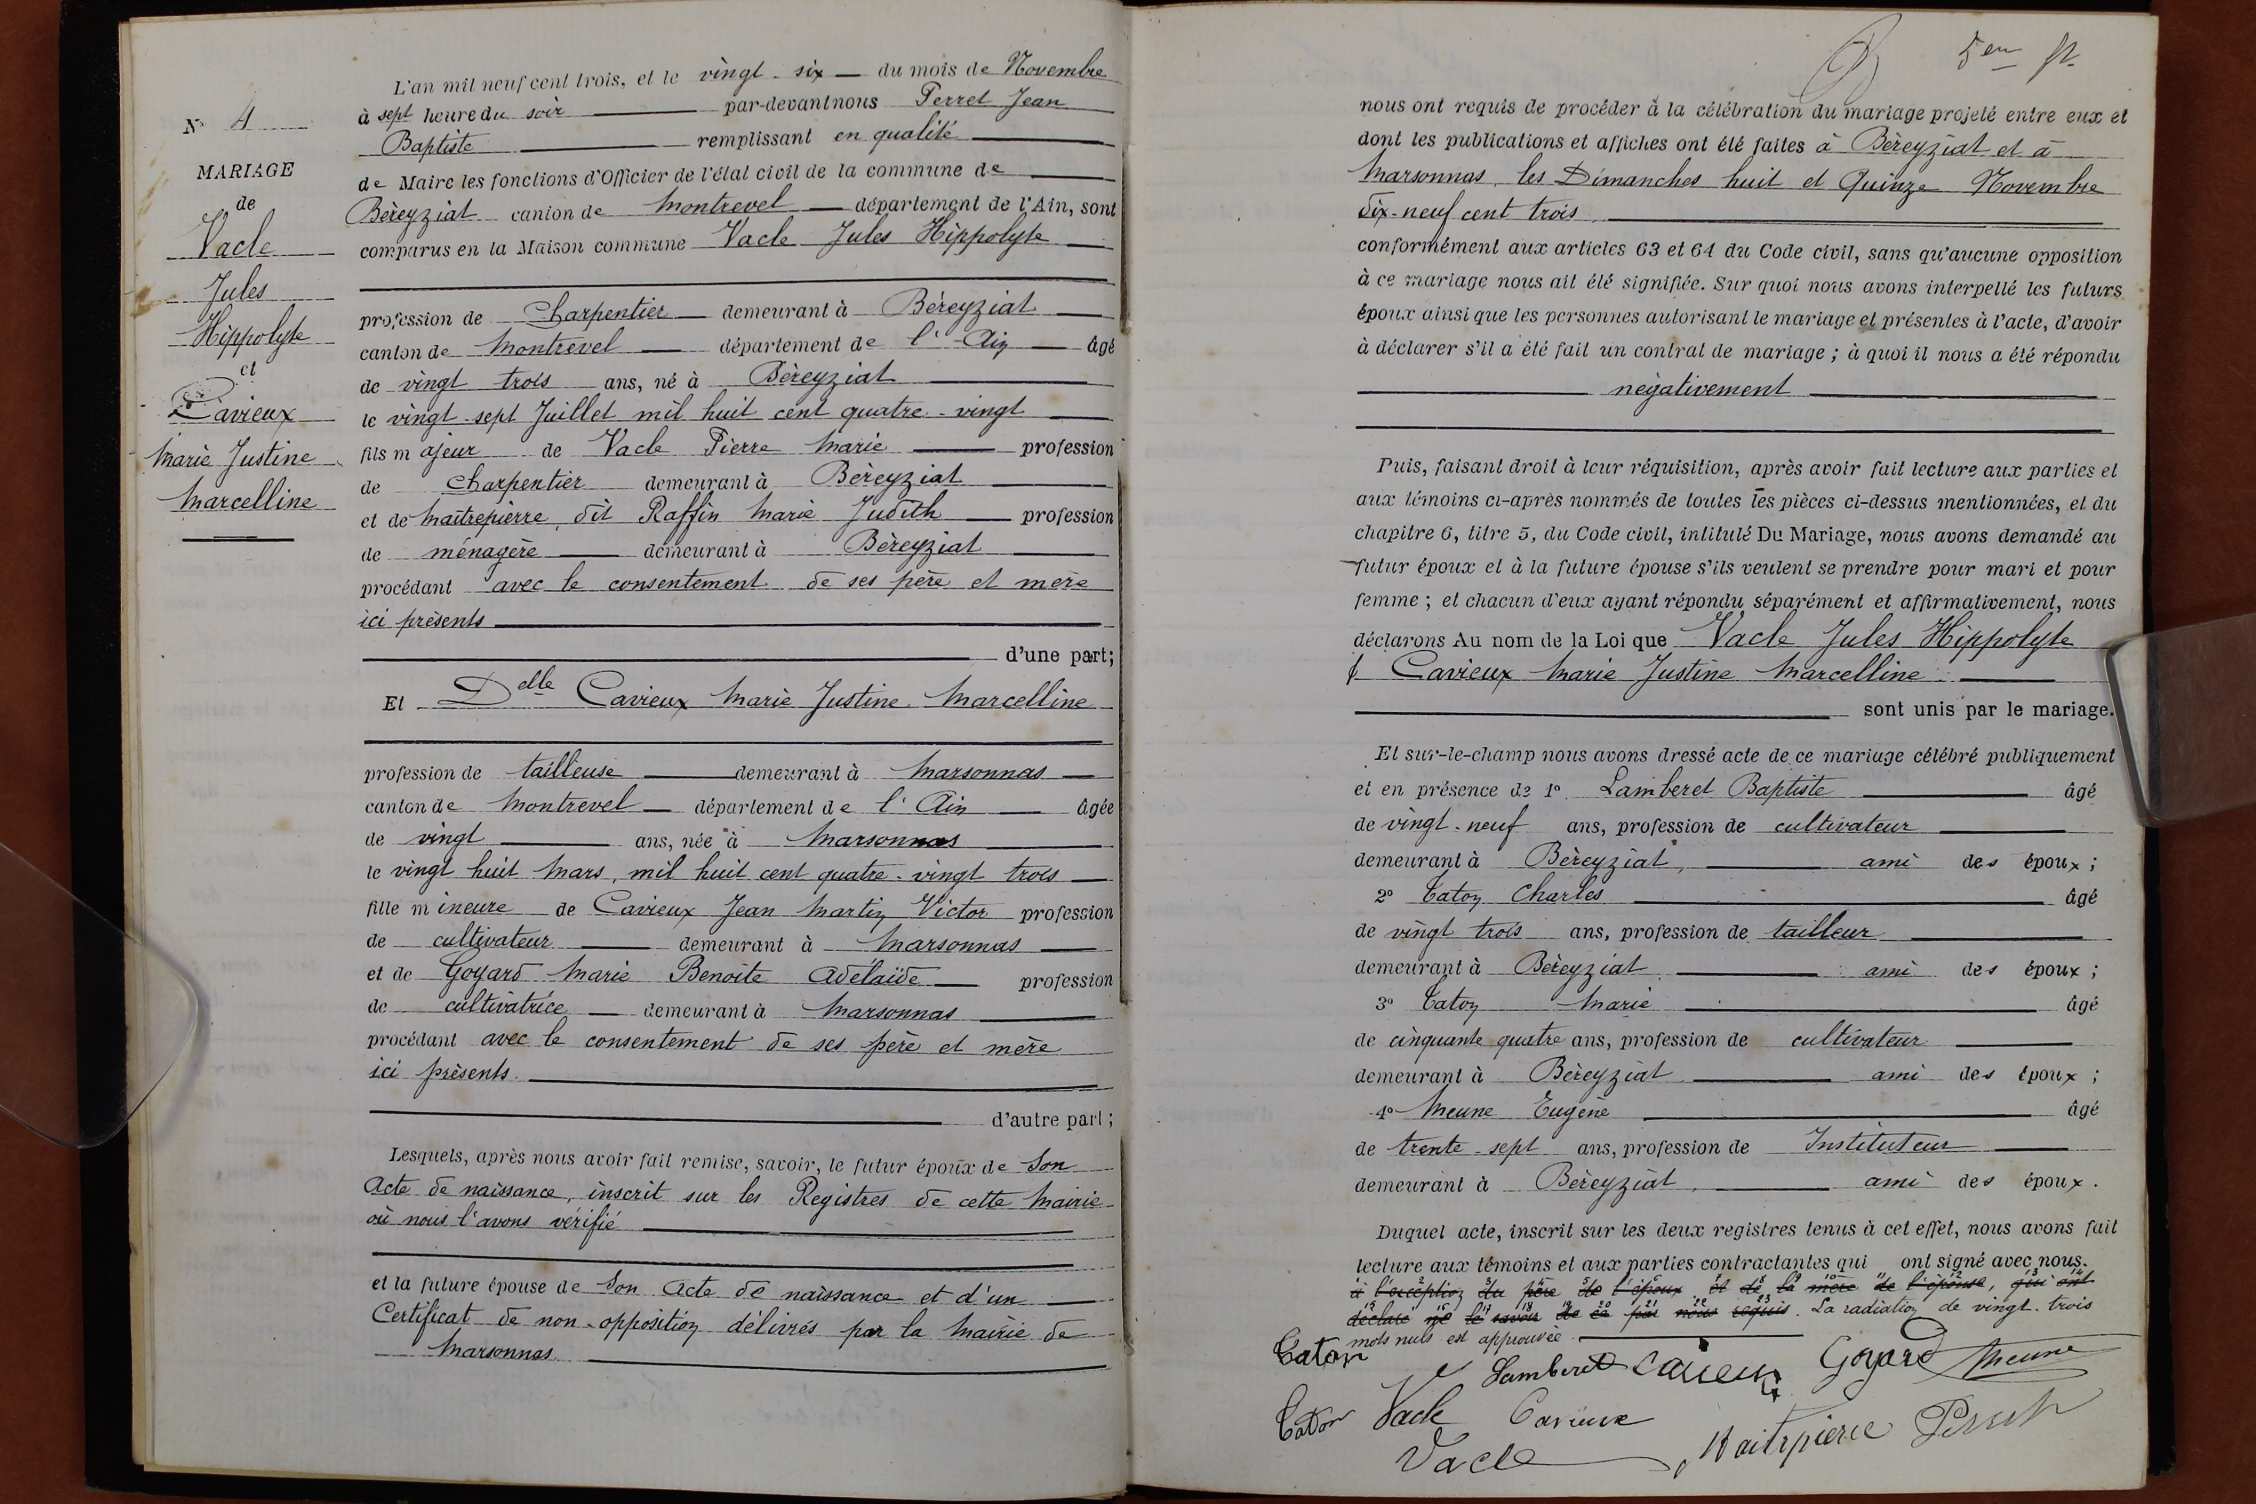 L'an mil neuf cent trois, et le vingt-six du mois de Novembre
à sept heure du soir par-devant nous Perret Jean
Baptiste remplissant en qualité
de Maire les fonctions d'Officier de l'état civil de la commune de
Béreyziat canton de Montrevel département de l'Ain, sont
comparus en la Maison commune Vacle Jules Hippolyte
profession de Charpentier demeurant à Béreyziat
canton de Montrevel département de l'Ain âgé
de vingt trois ans, né à Béreyziat
le vingt-sept Juillet mil huit cent quatre-vingt
fils majeur de Vacle Pierre Marie profession
de Charpentier demeurant à Béreyziat
et de Maîtrepierre, dit Raffin Marie Judith profession
de ménagère demeurant à Béreyziat
procédant avec le consentement de ses père et mère
ici présents
d'une part;
Et Delle Cavieux Marie Justine Marcelline
profession de tailleuse demeurant à Marsonnas
canton de Montrevel département de l'Ain âgée
de vingt ans, née à Marsonnas
le vingt huit Mars, mil huit cent quatre-vingt trois
fille mineure de Cavieux Jean Martin Victor profession
de cultivateur demeurant à Marsonnas
et de Goyard Marie Benoite Adélaïde profession
de cultivatrice demeurant à Marsonnas
procédant avec le consentement de ses père et mère
ici présents.
d'autre part;
Lesquels, après nous avoir fait remise, savoir, le futur époux de Son
Acte de naissance, inscrit sur les Registres de cette Mairie
où nous l'avons vérifié
et la future épouse de Son Acte de naissance et d'un
Certificat de non-opposition délivrés par la Mairie de
Marsonnas.
N° 4
MARIAGE
de
Vacle
Jules
Hippolyte
et
Cavieux
Marie Justine
Marcelline
5en
nous ont requis de procéder à la célébration du mariage projeté entre eux et
dont les publications et affiches ont été faites à Béreyziat et à
Marsonnas, les Dimanches huit et Quinze Novembre
dix-neuf cent trois
conformément aux articles 63 et 64 du Code civil, sans qu'aucune opposition
à ce mariage nous ait été signifiée. Sur quoi nous avons interpellé les futurs
époux ainsi que les personnes autorisant le mariage et présentes à l'acte, d'avoir
à déclarer s'il a été fait un contrat de mariage ; à quoi il nous a été répondu
négativement
Puis, faisant droit à leur réquisition, après avoir fait lecture aux parties et
aux témoins ci-après nommés de toutes les pièces ci-dessus mentionnées, et du
chapitre 6, titre 5, du Code civil, intitulé Du Mariage, nous avons demandé au
futur époux et à la future épouse s'ils veulent se prendre pour mari et pour
femme ; et chacun d'eux ayant répondu séparément et affirmativement, nous
déclarons Au nom de la Loi que Vacle Jules Hippolyte
& Cavieux Marie Justine Marcelline
sont unis par le mariage.
Et sur-le-champ nous avons dressé acte de ce mariage célébré publiquement
et en présence de 1° Lamberet Baptiste âgé
de vingt-neuf ans, profession de cultivateur
demeurant à Béreyziat, ami des époux ;
2° Caton Charles âgé
de vingt trois ans, profession de tailleur
demeurant à Béreyziat ami des époux ;
3° Caton Marie âgé
de cinquante quatre ans, profession de cultivateur
demeurant à Béreyziat ami des époux ;
4° Meune Eugène âgé
de trente-sept ans, profession de Instituteur
demeurant à Béreyziat, ami des époux.
Duquel acte, inscrit sur les deux registres tenus à cet effet, nous avons fait
lecture aux témoins et aux parties contractantes qui ont signé avec nous.
à l'exception du père de l'époux et de la mère de l'épouse, qui ont
déclaré ne le savoir de ce par nous requis. La radiation de vingt-trois
mots nuls est approuvée.
Caton Lamberet Cavieux Goyard Meune
Caton Vacle Cavieux
Vacle Maitrpierre Perret